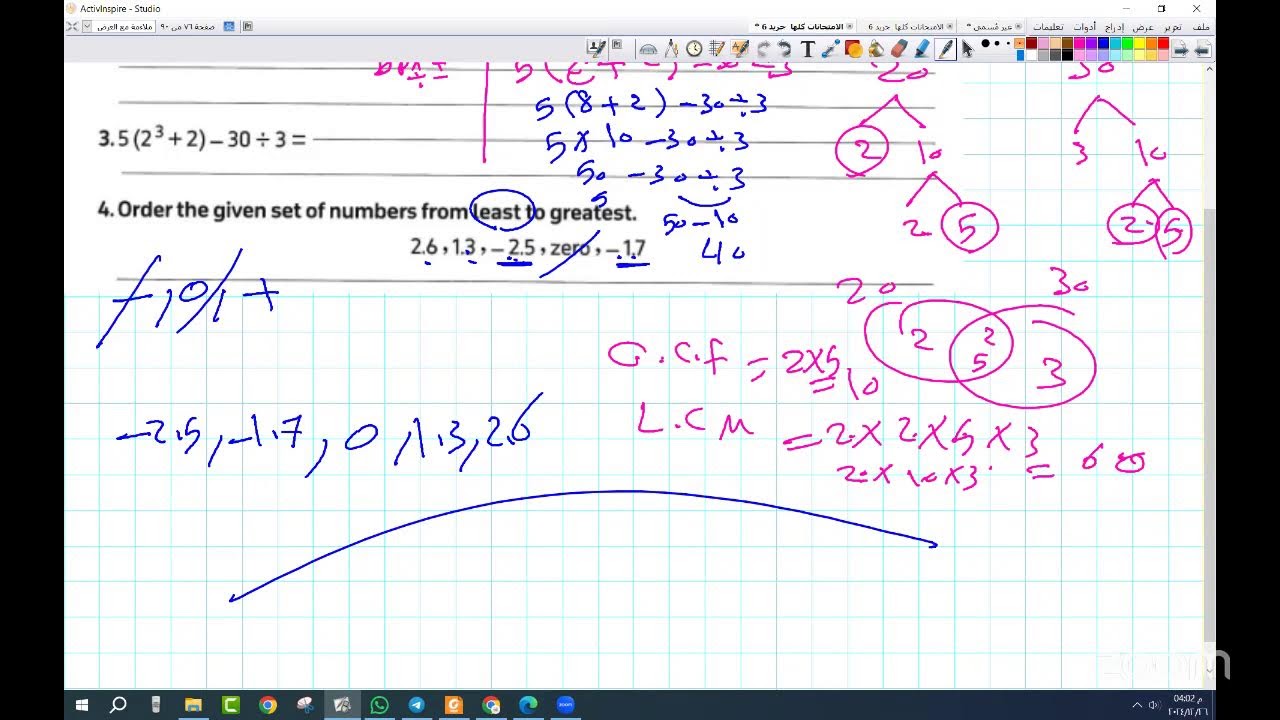 ActivInspire - Studio
ملف تحرير عرض إدراج أدوات تعليمات
غير مُسمى *
الامتحانات كلها جريد 6
الامتحانات كلها جريد 6 *
صفحة ٧٦ من ٩٠
ملاءمة مع العرض
5(8+2)-30÷3
3. 5(2³+2)-30÷3=
5×10-30÷3
50-30÷3
5
4. Order the given set of numbers from least to greatest.
50-10
2.6, 1.3, -2.5, zero, -1.7
40
-, 0, +
-2.5, -1.7, 0, 1.3, 2.6
20
2 10
2 5
30
3 10
2 5
20 30
2 2 5 3
G.C.F = 2×5
= 10
L.C.M
= 2×2×5×3
2×10×3 = 60
zoom
zoom
04:02 م
٢٠٢٤/١٢/٢٦